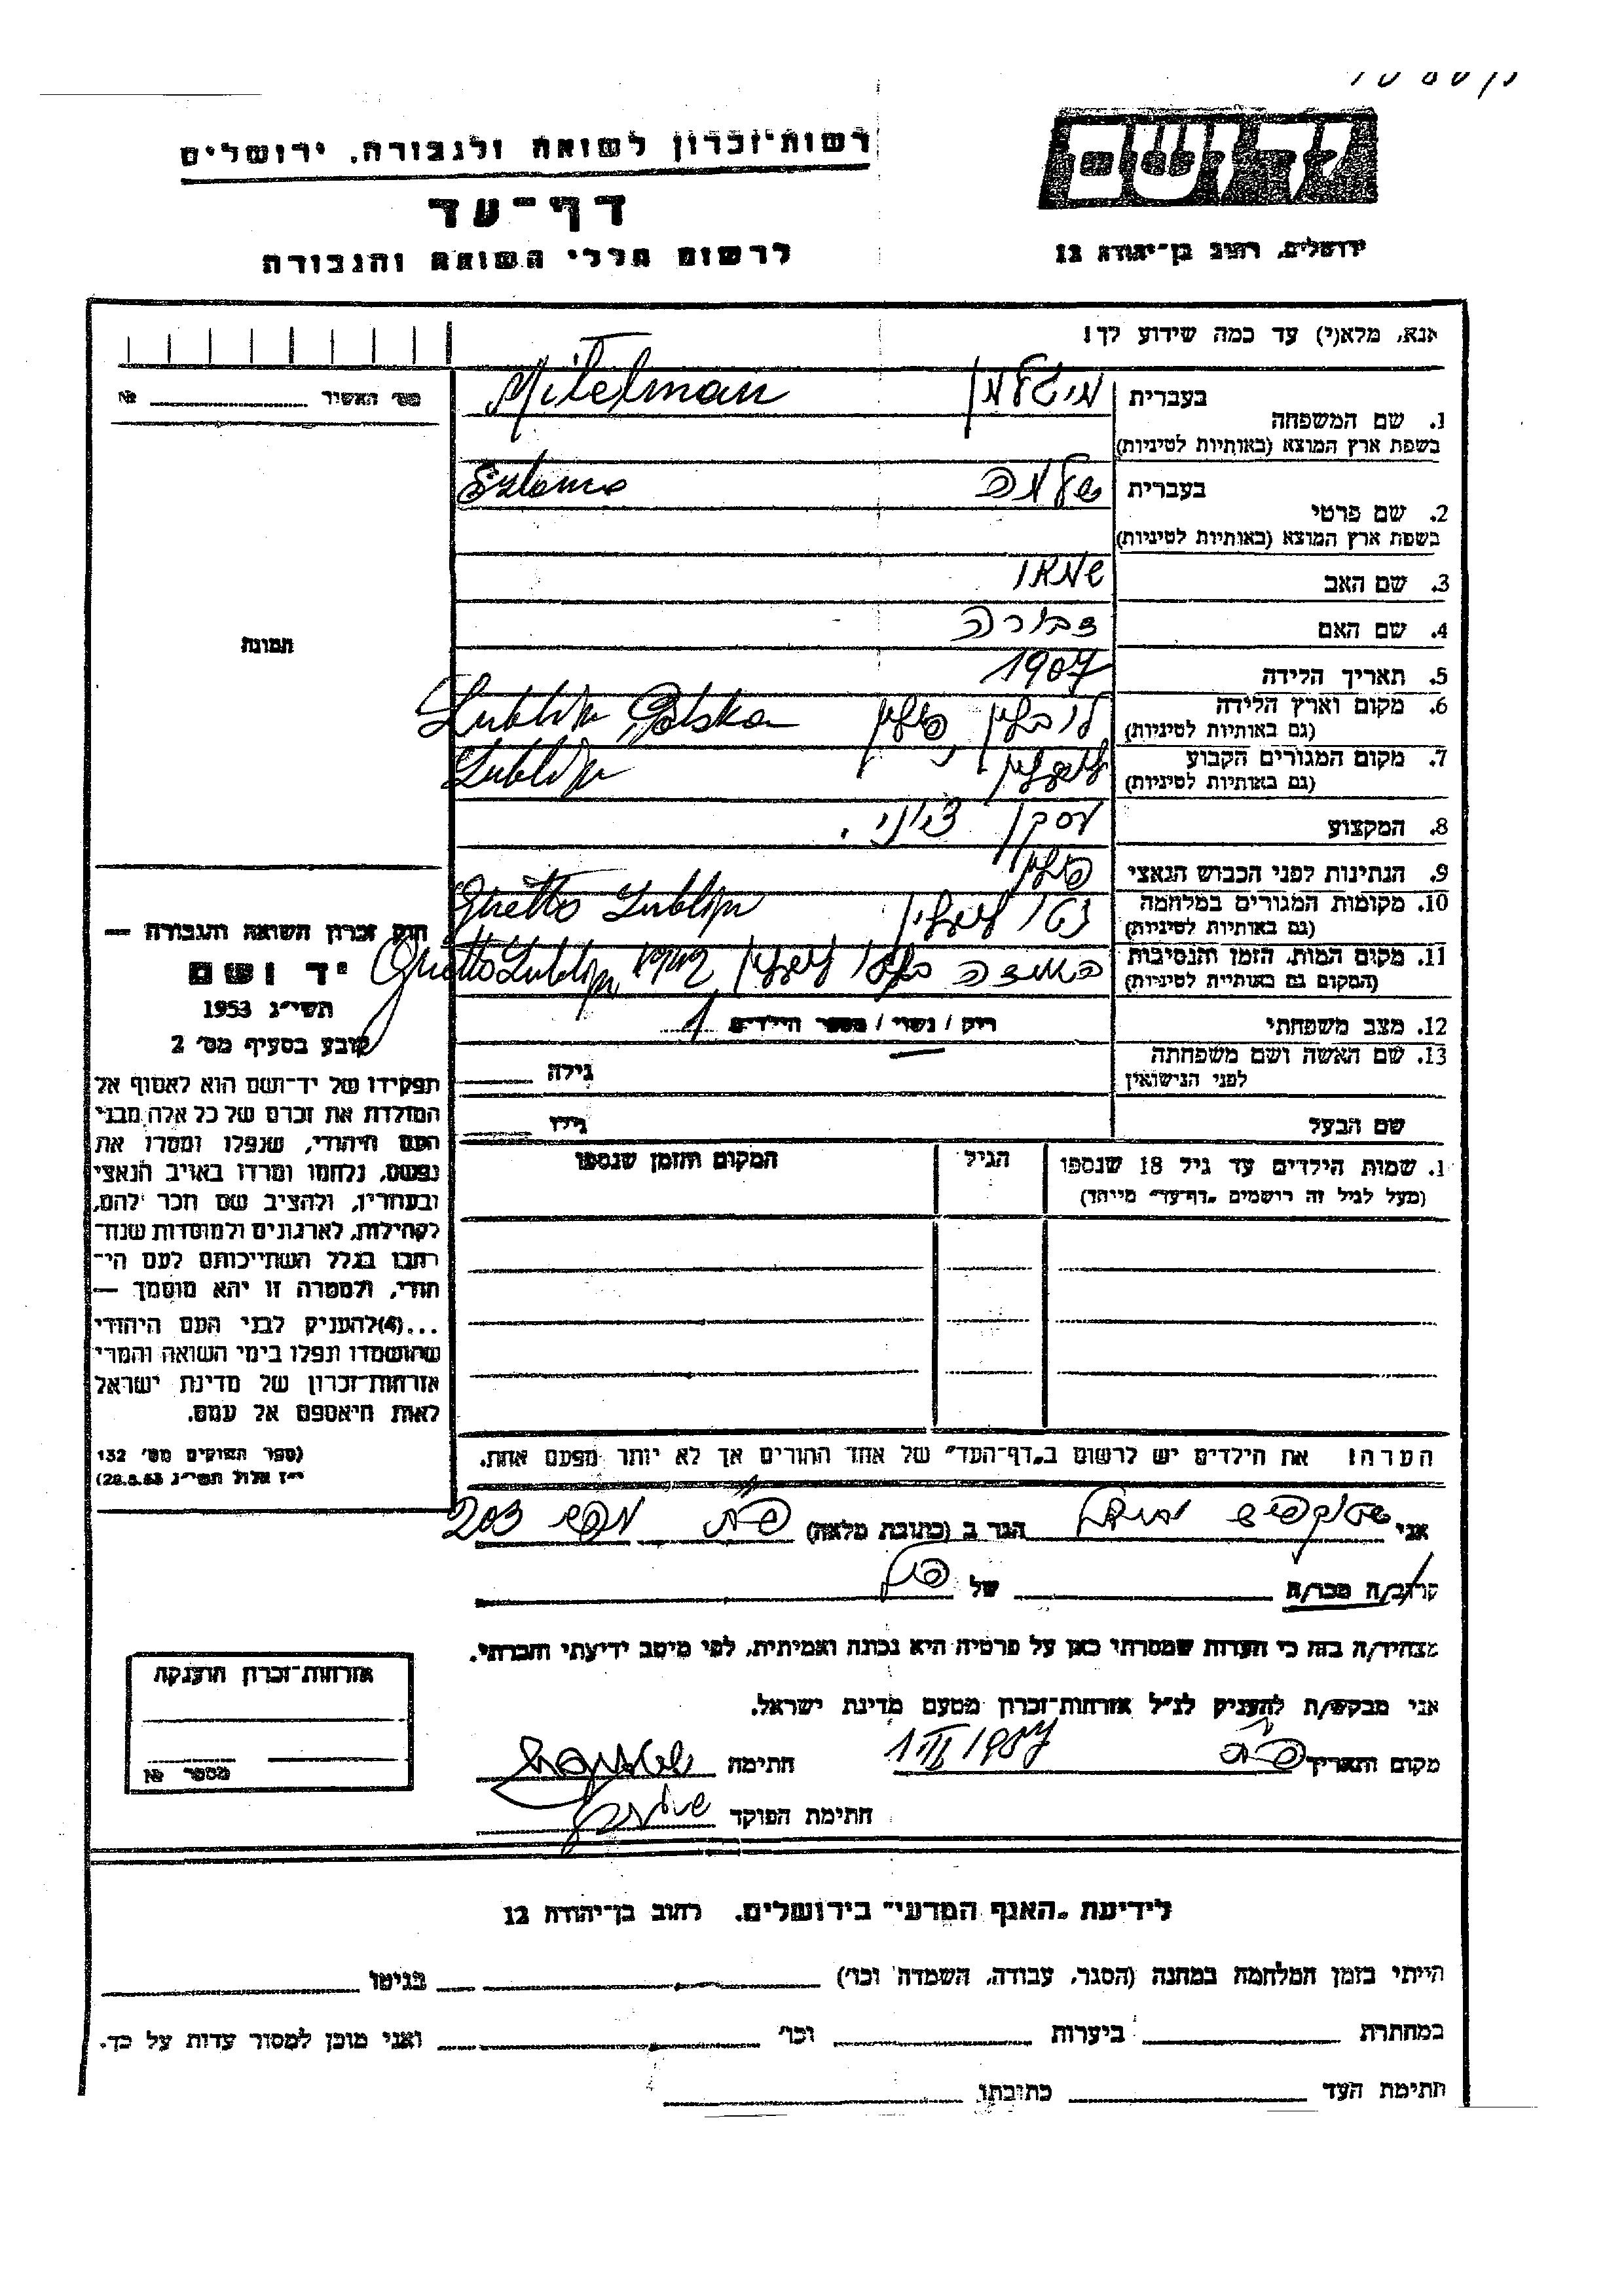 יד ושם
רשות־זכרון לשואה ולגבורה, ירושלים
דף־עד
לרשום חללי השואה והגבורה
ירושלים, רחוב בן־יהודה 12
אנא, מלא(י) עד כמה שידוע לך!
מס׳ האשיר №
תמונה
בעברית מיטלמן Mitelman
1. שם המשפחה
בשפת ארץ המוצא (באותיות לטיניות)
בעברית שלמה Szloma
2. שם פרטי
בשפת ארץ המוצא (באותיות לטיניות)
3. שם האב
4. שם האם דבורה
5. תאריך הלידה 1907
6. מקום וארץ הלידה לובלין, פולין Lublin, Polska
(גם באותיות לטיניות)
7. מקום המגורים הקבוע לובלין Lublin
(גם באותיות לטיניות)
8. המקצוע עסקן ציוני.
9. הנתינות לפני הכבוש הנאצי פולין
10. מקומות המגורים במלחמה גטו לובלין Ghetto Lublin
(גם באותיות לטיניות)
11. מקום המות, הזמן והנסיבות בגטו לובלין Ghetto Lublin
(המקום גם באותיות לטיניות)
12. מצב משפחתי רוק / נשוי / מספר הילדים 1
13. שם האשה ושם משפחתה
לפני הנישואין גילה
שם הבעל גילו
1. שמות הילדים עד גיל 18 שנספו הגיל המקום והזמן שנספו
(מעל לגיל זה רושמים „דף־עד״ מיוחד)
הערה! את הילדים יש לרשום ב„דף־העד״ של אחד ההורים אך לא יותר מפעם אחת.
חוק זכרון השואה והגבורה —
יד ושם
תשי״ג 1953
קובע בסעיף מס׳ 2
תפקידו של יד־ושם הוא לאסוף אל
המולדת את זכרם של כל אלה מבני
העם היהודי, שנפלו ומסרו את
נפשם, נלחמו ומרדו באויב הנאצי
ובעוזריו, ולהציב שם וזכר להם,
לקהילות, לארגונים ולמוסדות שנח־
רבו בגלל השתייכותם לעם הי־
הודי, ולמטרה זו יהא מוסמך —
...(4)להעניק לבני העם היהודי
שהושמדו ונפלו בימי השואה והמרי
אזרחות־זכרון של מדינת ישראל
לאות היאספם אל עמם.
(ספר החוקים מס׳ 132
י״ז אלול תשי״ג 28.8.53)
אני הגר ב (כתובת מלאה) 203
קרוב/ה מכר/ה של
מצהיר/ה בזה כי העדות שמסרתי כאן על פרטיה היא נכונה ואמיתית, לפי מיטב ידיעתי והכרתי.
אני מבקש/ת להעניק לנ״ל אזרחות־זכרון מטעם מדינת ישראל.
מקום ותאריך 1957 חתימה
חתימת הפוקד
אזרחות־זכרון הוענקה
מספר №
לידיעת „האגף המדעי״ בירושלים, רחוב בן־יהודה 12
הייתי בזמן המלחמה במחנה (הסגר, עבודה, השמדה וכו׳) בגיטו
במחתרת ביערות וכו׳ ואני מוכן למסור עדות על כך.
חתימת העד כתובתו